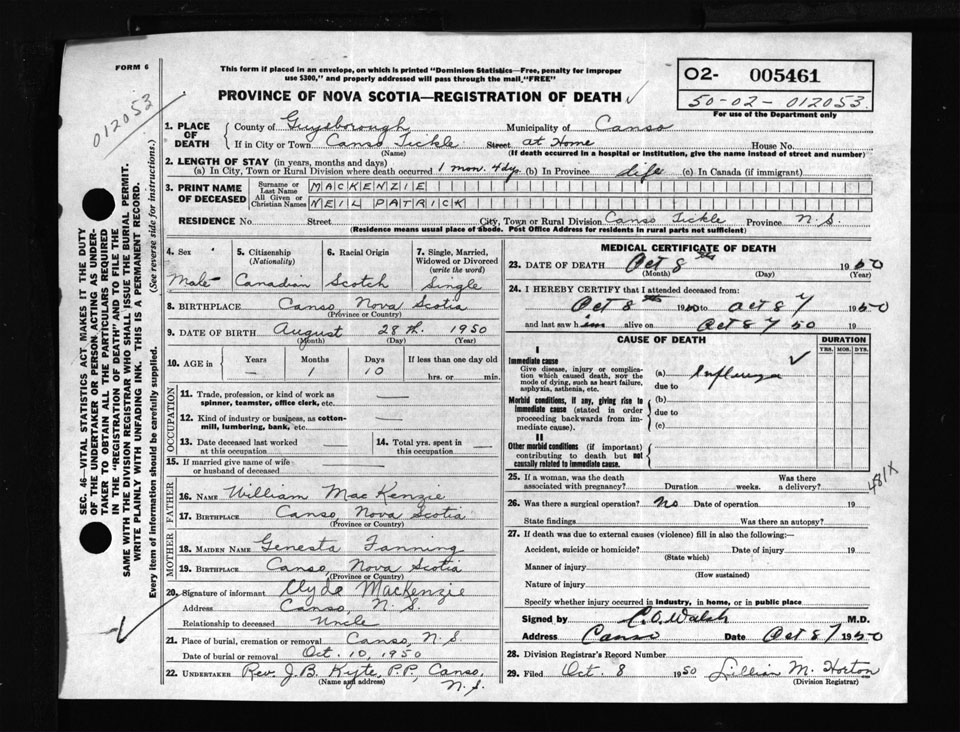 FORM 6
This form if placed in an envelope, on which is printed "Dominion Statistics—Free, penalty for improper
use $300," and properly addressed will pass through the mail "FREE"
PROVINCE OF NOVA SCOTIA—REGISTRATION OF DEATH
O2- 005461
50-02-012053
For use of the Department only
012053
SEC. 46—VITAL STATISTICS ACT MAKES IT THE DUTY
OF THE UNDERTAKER OR PERSON ACTING AS UNDER-
TAKER TO OBTAIN ALL THE PARTICULARS REQUIRED
IN THE "REGISTRATION OF DEATH" AND TO FILE THE
SAME WITH THE DIVISION REGISTRAR WHO SHALL ISSUE THE BURIAL PERMIT.
WRITE PLAINLY WITH UNFADING INK. THIS IS A PERMANENT RECORD.
Every item of information should be carefully supplied. (See reverse side for instructions.)
1. PLACE OF DEATH
County of Guysborough Municipality of Canso
If in City or Town Canso Tickle Street at Home House No.
(Name) (If death occurred in a hospital or institution, give the name instead of street and number)
2. LENGTH OF STAY (in years, months and days)
(a) In City, Town or Rural Division where death occurred 1 mon. 4 dys (b) In Province life (c) In Canada (if immigrant)
3. PRINT NAME OF DECEASED
Surname or Last Name MACKENZIE
All Given or Christian Names NEIL PATRICK
RESIDENCE No. Street City, Town or Rural Division Canso Tickle Province N.S.
(Residence means usual place of abode. Post Office Address for residents in rural parts not sufficient)
4. Sex Male
5. Citizenship (Nationality) Canadian
6. Racial Origin Scotch
7. Single, Married, Widowed or Divorced (write the word) Single
8. BIRTHPLACE Canso Nova Scotia
(Province or Country)
9. DATE OF BIRTH August 28th. 1950
(Month) (Day) (Year)
10. AGE in Years Months Days If less than one day old
— 1 10 hrs. or min.
OCCUPATION
11. Trade, profession, or kind of work as
spinner, teamster, office clerk, etc. —
12. Kind of industry or business, as cotton-
mill, lumbering, bank, etc. —
13. Date deceased last worked
at this occupation —
14. Total yrs. spent in
this occupation —
15. If married give name of wife
or husband of deceased
FATHER
16. NAME William MacKenzie
17. BIRTHPLACE Canso, Nova Scotia
(Province or Country)
MOTHER
18. MAIDEN NAME Genesta Fanning
19. BIRTHPLACE Canso, Nova Scotia
(Province or Country)
20. Signature of informant Clyde MacKenzie
Address Canso, N.S.
Relationship to deceased Uncle
21. Place of burial, cremation or removal Canso, N.S.
Date of burial or removal Oct. 10, 1950
22. UNDERTAKER Rev. J.B. Kyte, P.P., Canso, N.S.
(Name and address)
MEDICAL CERTIFICATE OF DEATH
23. DATE OF DEATH Oct 8th 1950
(Month) (Day) (Year)
24. I HEREBY CERTIFY that I attended deceased from:
Oct 8th 1950 to Oct 8 1950
and last saw him alive on Oct 8 50 19
CAUSE OF DEATH
DURATION
YRS. MOS. DYS.
I
Immediate cause
Give disease, injury or complica-
tion which caused death, not the
mode of dying, such as heart failure,
asphyxia, asthenia, etc.
(a) Influenza
due to
Morbid conditions, if any, giving rise to
immediate cause (stated in order
proceeding backwards from im-
mediate cause).
(b)
due to
(c)
II
Other morbid conditions (if important)
contributing to death but not
causally related to immediate cause.
481X
25. If a woman, was the death
associated with pregnancy? Duration weeks. Was there
a delivery?
26. Was there a surgical operation? No Date of operation 19
State findings Was there an autopsy?
27. If death was due to external causes (violence) fill in also the following:—
Accident, suicide or homicide? Date of injury 19
(State which)
Manner of injury
(How sustained)
Nature of injury
Specify whether injury occurred in industry, in home, or in public place
Signed by C.O. Walsh M.D.
Address Canso Date Oct 8 1950
28. Division Registrar's Record Number
29. Filed Oct. 8 1950 Lillian M. Horton
(Division Registrar)